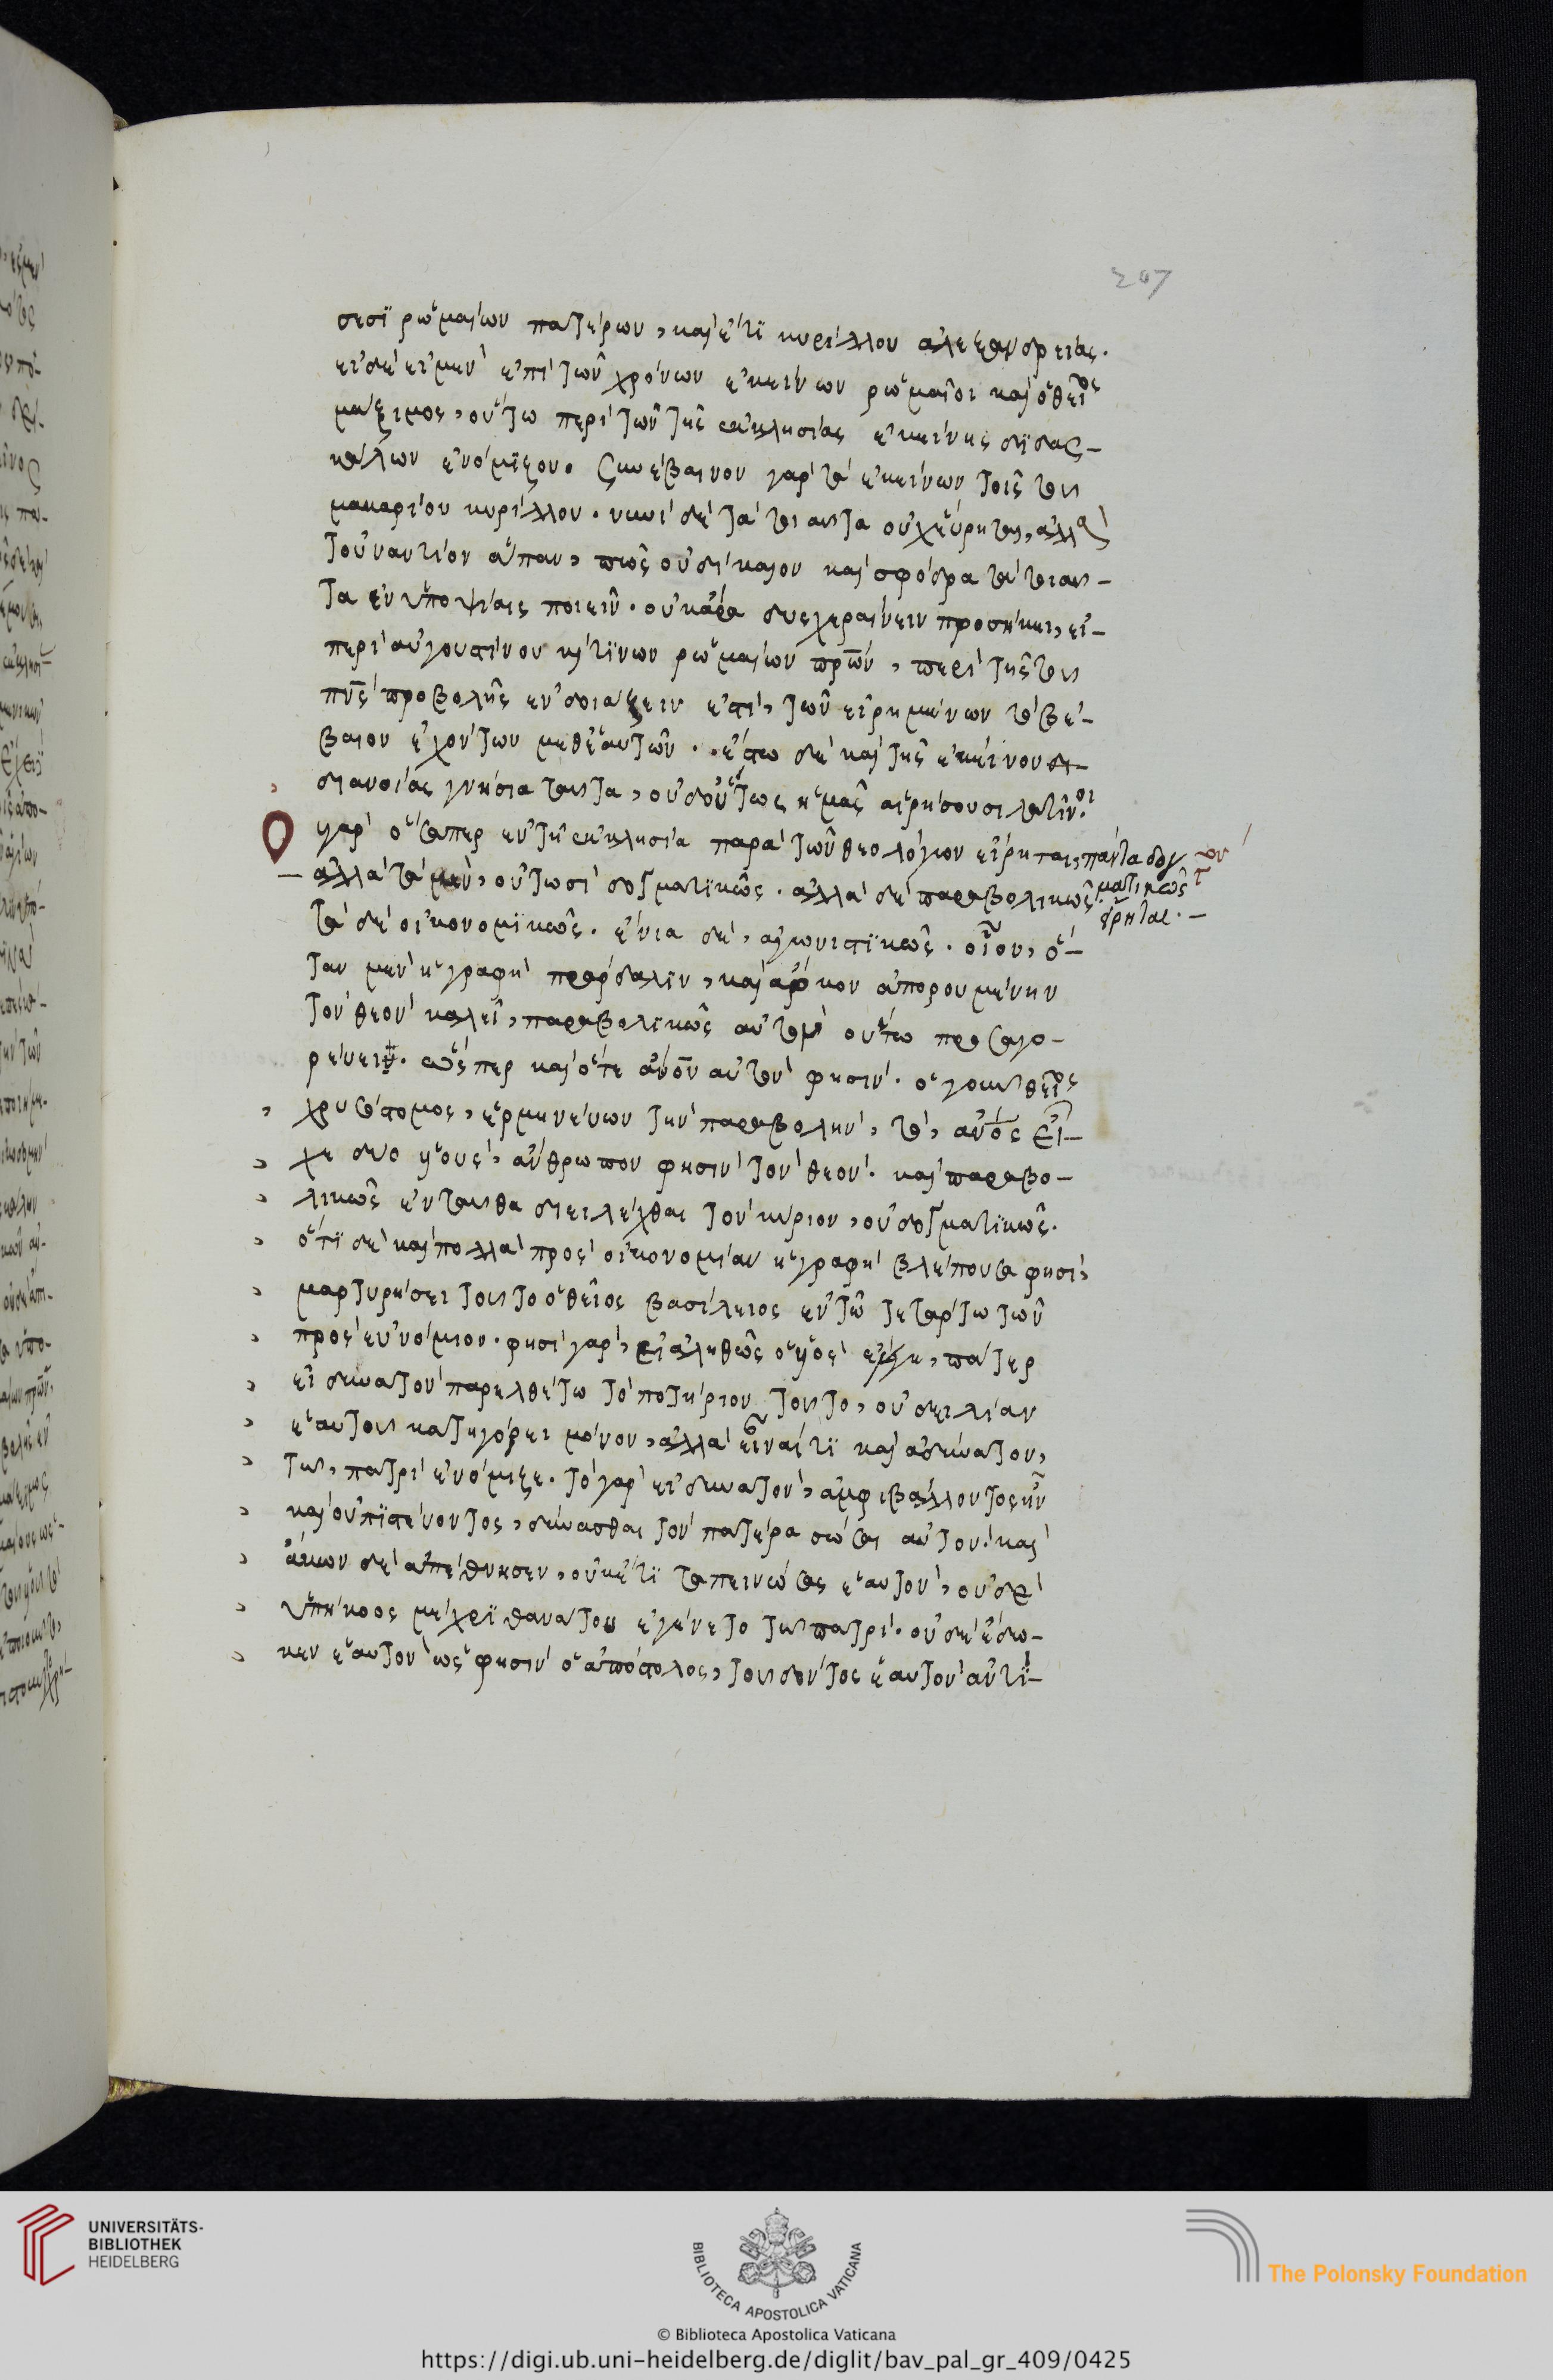 207
σεσϊ ῥωμαίων πατέρων, καὶ ἔτϊ κυρίλλου ἀλεξανδρείας.
εἰ δὲ εἰ μὲν ἐπὶ τῶν χρόνων ἐκείνων ῥωμαῖοι καὶ ὁ θεῖος
μάξιμος, οὕτω περὶ τῶν τῆς ἐκκλησίας ἐκείνης διδασ-
κάλων ἐνόμιζον. συνέβαινον γὰρ τὰ ἐκείνων τοῖς τοῦ
μακαρίου κυρίλλου. νυνὶ δὲ τὰ τοιαῦτα οὐχ εὕρηται, ἀλλὰ
τοὐναντίον ἅπαν, πῶς οὐ δίκαιον καὶ σφόδρα τὰ τοιαῦ-
τα ἐν ὑποψίαις ποιεῖν. οὐκ ἄρα δυσχεραίνειν προσήκει, εἰ
περὶ αὐγουστίνου κ τϊνων ῥωμαίων πρων, περὶ τῆς τοῦ
πνς προβολῆς ἐνδοιάζειν ἐστὶ, τῶν εἰρημένων τὸ βέ-
βαιον ἐχόντων μεθ ἑαυτῶν. ἔστω δὲ καὶ τῆς ἐκείνου
διανοίας γνήσια ταῦτα, οὐδ οὕτως ἡμᾶς αἱρήσουσι λατῖνοι.
γὰρ ὅσαπερ ἐν τῇ ἐκκλησία παρὰ τῶν θεολόγων εἴρηται, πάντα δογ
ματικῶς
εἴρηται.
οὐ
τ
ἀλλὰ τὰ μὲν, οὑτωσὶ δογματϊκῶς. ἀλλὰ δὲ παραβολικῶς.
τὰ δὲ οἰκονομϊκῶς. ἔνια δὲ, ἀγωνιστϊκῶς. οἷον, ὅ-
ταν μὲν ἡ γραφὴ πάρδαλϊν, καὶ ἄρκον ἀπορουμένην
τὸν θεὸν καλεῖ, παραβολϊκῶς αὐτὸν οὕτω προσαγο-
ρεύει. ὥσπερ καὶ ὅτε ἀνον αὐτὸν φησὶν. ὁ γοῦν θεῖος
χρυσόστομος, ἑρμηνεύων τὴν παραβολὴν, τὸ, ανος εἶ-
χε δυο υους, ἄνθρωπον φησὶν τὸν θεὸν. καὶ παραβο-
λικῶς ἐνταῦθα διειλέχθαι τὸν κύριον, οὐ δογματϊκῶς.
ὅτϊ δὲ καὶ πολλὰ πρὸς οἰκονομίαν ἡ γραφὴ βλέπουσα φησὶ,
μαρτυρήσει τοῦτο ὁ θεῖος βασίλειος ἐν τῷ τετάρτω τῶν
πρὸς εὐνόμιον. φησὶ γὰρ, εἰ ἀληθῶς ὁ υος ἔλεγε, πάτερ
εἰ δυνατὸν παρελθέτω τὸ ποτήριον τοῦτο, οὐ δειλίαν
ἑαυτοῦ κατηγόρει μόνον, ἀλλὰ εἶναί τϊ καὶ ἀδύνατον,
τῶ πατρὶ ἐνόμιζε. τὸ γὰρ εἰ δυνατὸν, ἀμφιβάλλοντος ἦν
καὶ οὐ πϊστεύοντος, δύνασθαι τὸν πατέρα σῶσαι αὐτὸν. καὶ
ἄκων δὲ ἀπέθνησεν, οὐκ ἔτϊ ταπεινώσας ἑαυτὸν, οὐδὲ
ὑπήκοος μέχρϊ θανάτου ἐγένετο τῶ πατρὶ. οὐδὲ ἔδω-
κεν ἑαυτὸν ὡς φησὶν ὁ ἀπόστολος, τοῦ δόντος ἑαυτὸν ἀντϊ-
UNIVERSITÄTS-
BIBLIOTHEK
HEIDELBERG
BIBLIOTECA APOSTOLICA VATICANA
The Polonsky Foundation
© Biblioteca Apostolica Vaticana
https://digi.ub.uni-heidelberg.de/diglit/bav_pal_gr_409/0425